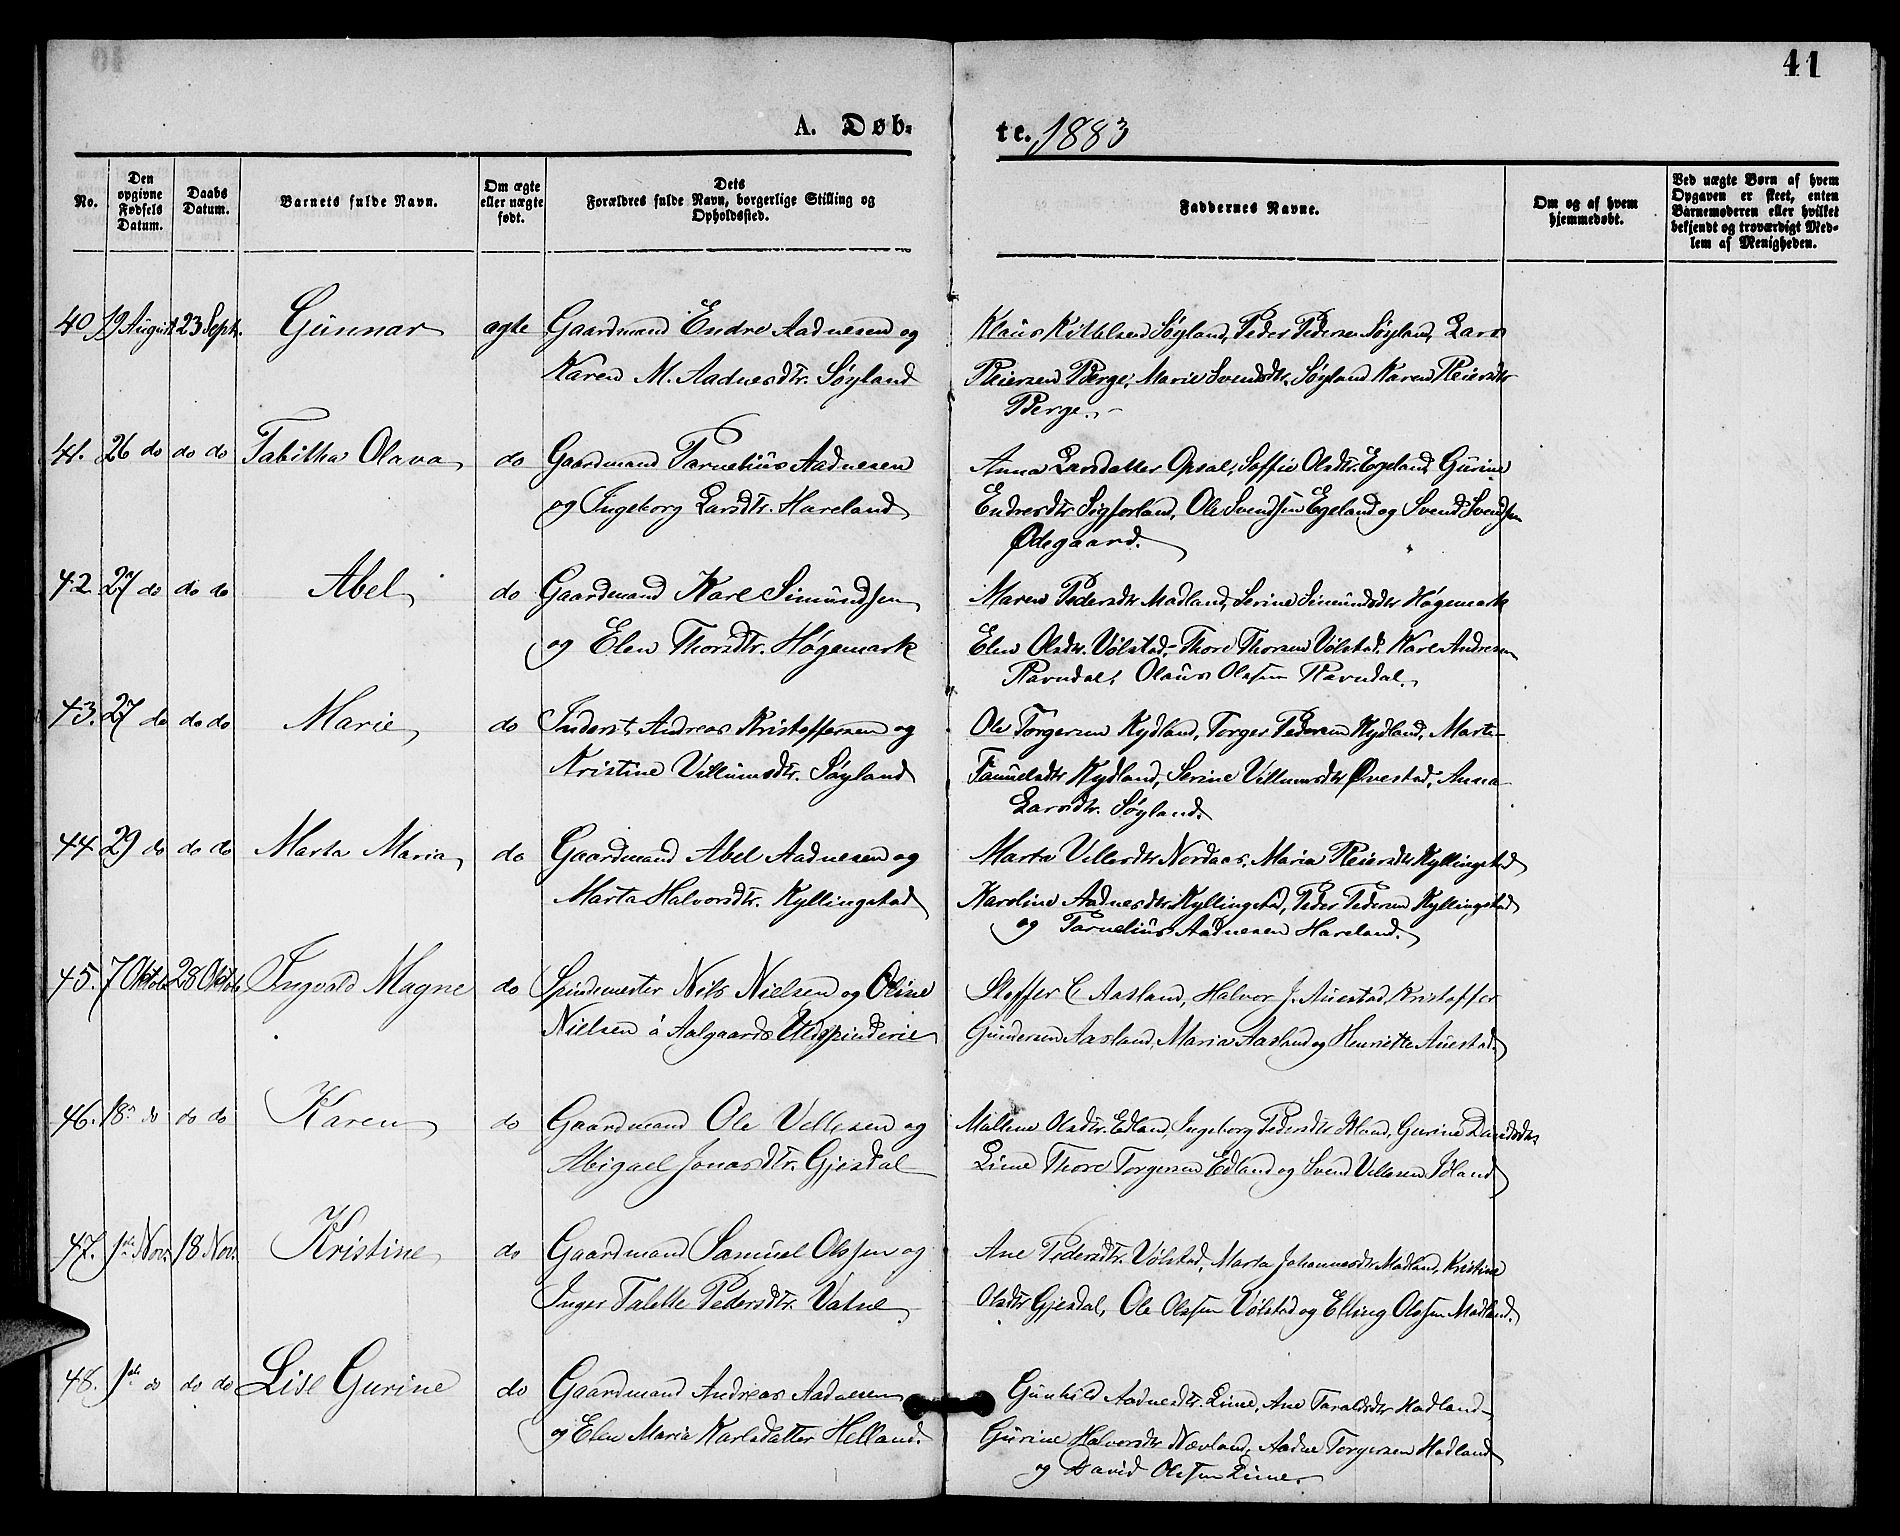 41
A. Døb-
te. 1883
No.
Den opgivne Fødsels Datum.
Daabs Datum.
Barnets fulde Navn.
Om ægte eller uægte født.
Dets Forældres fulde Navn, borgerlige Stilling og Opholdssted.
Faddernes Navne.
Om og af hvem hjemmedøbt.
Ved uægte Børn af hvem Opgaven er skeet, enten Barnemoderen eller hvilket bekjendt og troværdigt Medlem af Menigheden.
40 19 August 23 Sept. Gunnar ægte Gaardmand Endre Aadnesen og
Karen M. Aadnesdtr. Søyland
Klaus Kittelsen Søyland, Peder Pedersen Søyland, Lars
Reiersen Berge, Marie Svendsdtr. Søyland Karen Reiersdtr
Berge.
41. 26 do do do Tabitha Olava do Gaardmand Parnelius Aadnesen
og Ingeborg Larsdtr. Hareland
Anna Larsdatter Opsal, Soffie Olsdtr. Egeland Gurine
Endresdtr Sigførland, Ole Svendsen Egeland og Svend Svendsen
Ødegaard.
42. 27 do do do Abel do Gaardmand Karl Simundsen
og Elen Thorsdtr. Høgemark
Maren Pedersdtr Madland, Serine Simundsdtr Høgemark
Elen Olsdtr. Vølstad, Thore Thorsen Vølstad, Karl Andresen
Ravndal, Olaus Olssen Ravndal.
43. 27 do do do Marie do Inderst Andreas Kristoffersen og
Kristine Villumsdtr. Søyland
Ole Torgersen Kydland, Torger Pedersen Kydland, Marte
Kydland, Serine Villumsdtr Øvestad, Anna
Larsdtr. Søyland.
44 29 do do do Marta Maria do Gaardmand Abel Aadnesen og
Marta Halvorsdtr. Kyllingstad
Marta Villasdtr Nordaas, Maria Reiersdtr Kyllingstad
Karoline Aadnesdtr Kyllingstad, Peder Pedersen Kyllingstad
og Parnelius Aadnesen Hareland.
45. 7 Oktob 28 Oktob Ingvald Magne do Spindemester Nils Nielsen og Oline
Nielsen á Aalgaards Uldspinderie
Stoffer C Aasland, Halvor J. Auestad, Kristoffer
Gundersen Aasland, Maria Aasland og Henriette Auestad.
46. 18 do do do Karen do Gaardmand Ole Villesen og
Abigael Jonasdtr. Gjesdal
Malene Olsdtr. Edland, Ingeborg Pedersdtr Øland, Gurine
Lime Thore Torgersen Edland og Svend Villasen Øland
47. 1ste Nov. 18 Nov. Kristine do Gaardmand Samuel Olssen og
Inger Talette Pedersdtr. Vatne
Ane Pedersdtr. Vølstad, Marta Johannesdtr Madland, Kristine
Olsdtr Gjesdal, Ole Olssen Vølstad og Elling Olssen Madland.
48. 1ste do do do Lise Gurine do Gaardmand Andreas Aadnesen
og Elen Maria Karlsdatter Helland.
Gunhild Aadnesdtr. Lime, Ane Taraldsdtr Hadland
Gurine Halvorsdtr Nævland, Aadne Torgersen Hadland
og David Olssen Lime.